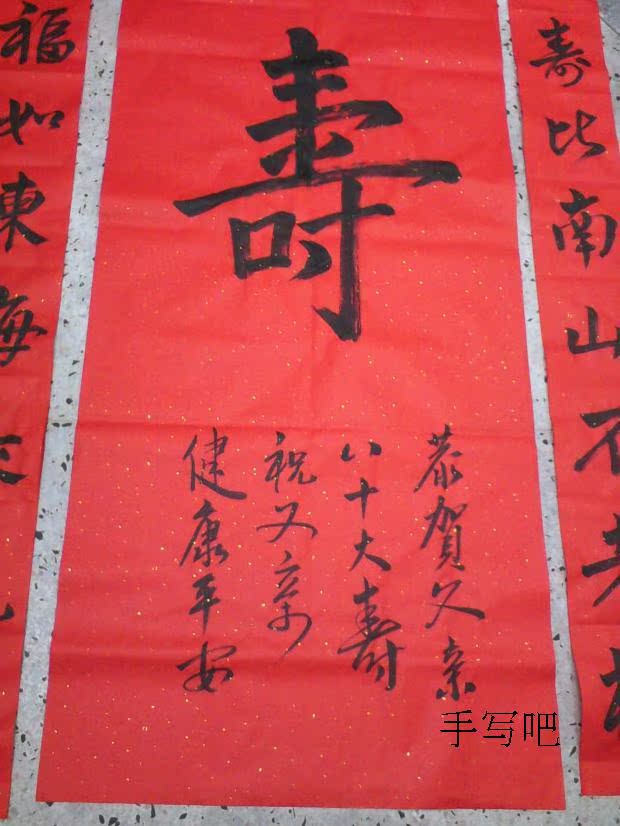 寿比南山不老
壽
恭賀父亲
八十大壽
祝父亲
健康平安
福如東海
手写吧